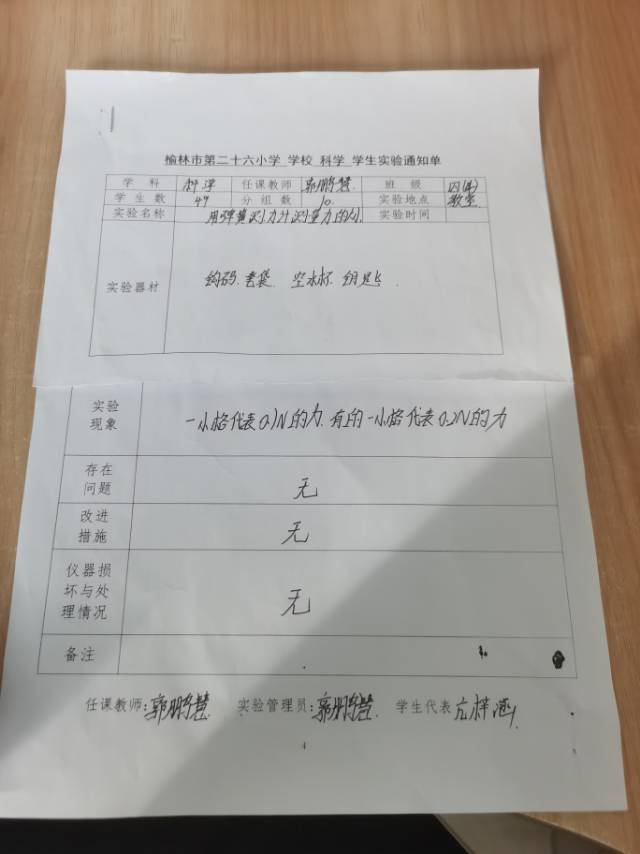 榆林市第二十六小学 学校 科学 学生实验通知单
学科 科学 任课教师 郭鹏慧 班级 四(4)
学生数 49 分组数 10 实验地点 教室
实验名称 用弹簧测力计测量力的大小 实验时间
实验器材 钩码. 笔袋. 空水杯. 钥匙.
实验
现象 一小格代表0.1N的力. 有的一小格代表0.2N的力
存在
问题 无
改进
措施 无
仪器损
坏与处
理情况 无
备注
任课教师:郭鹏慧 实验管理员:郭鹏慧. 学生代表 梓涵
4